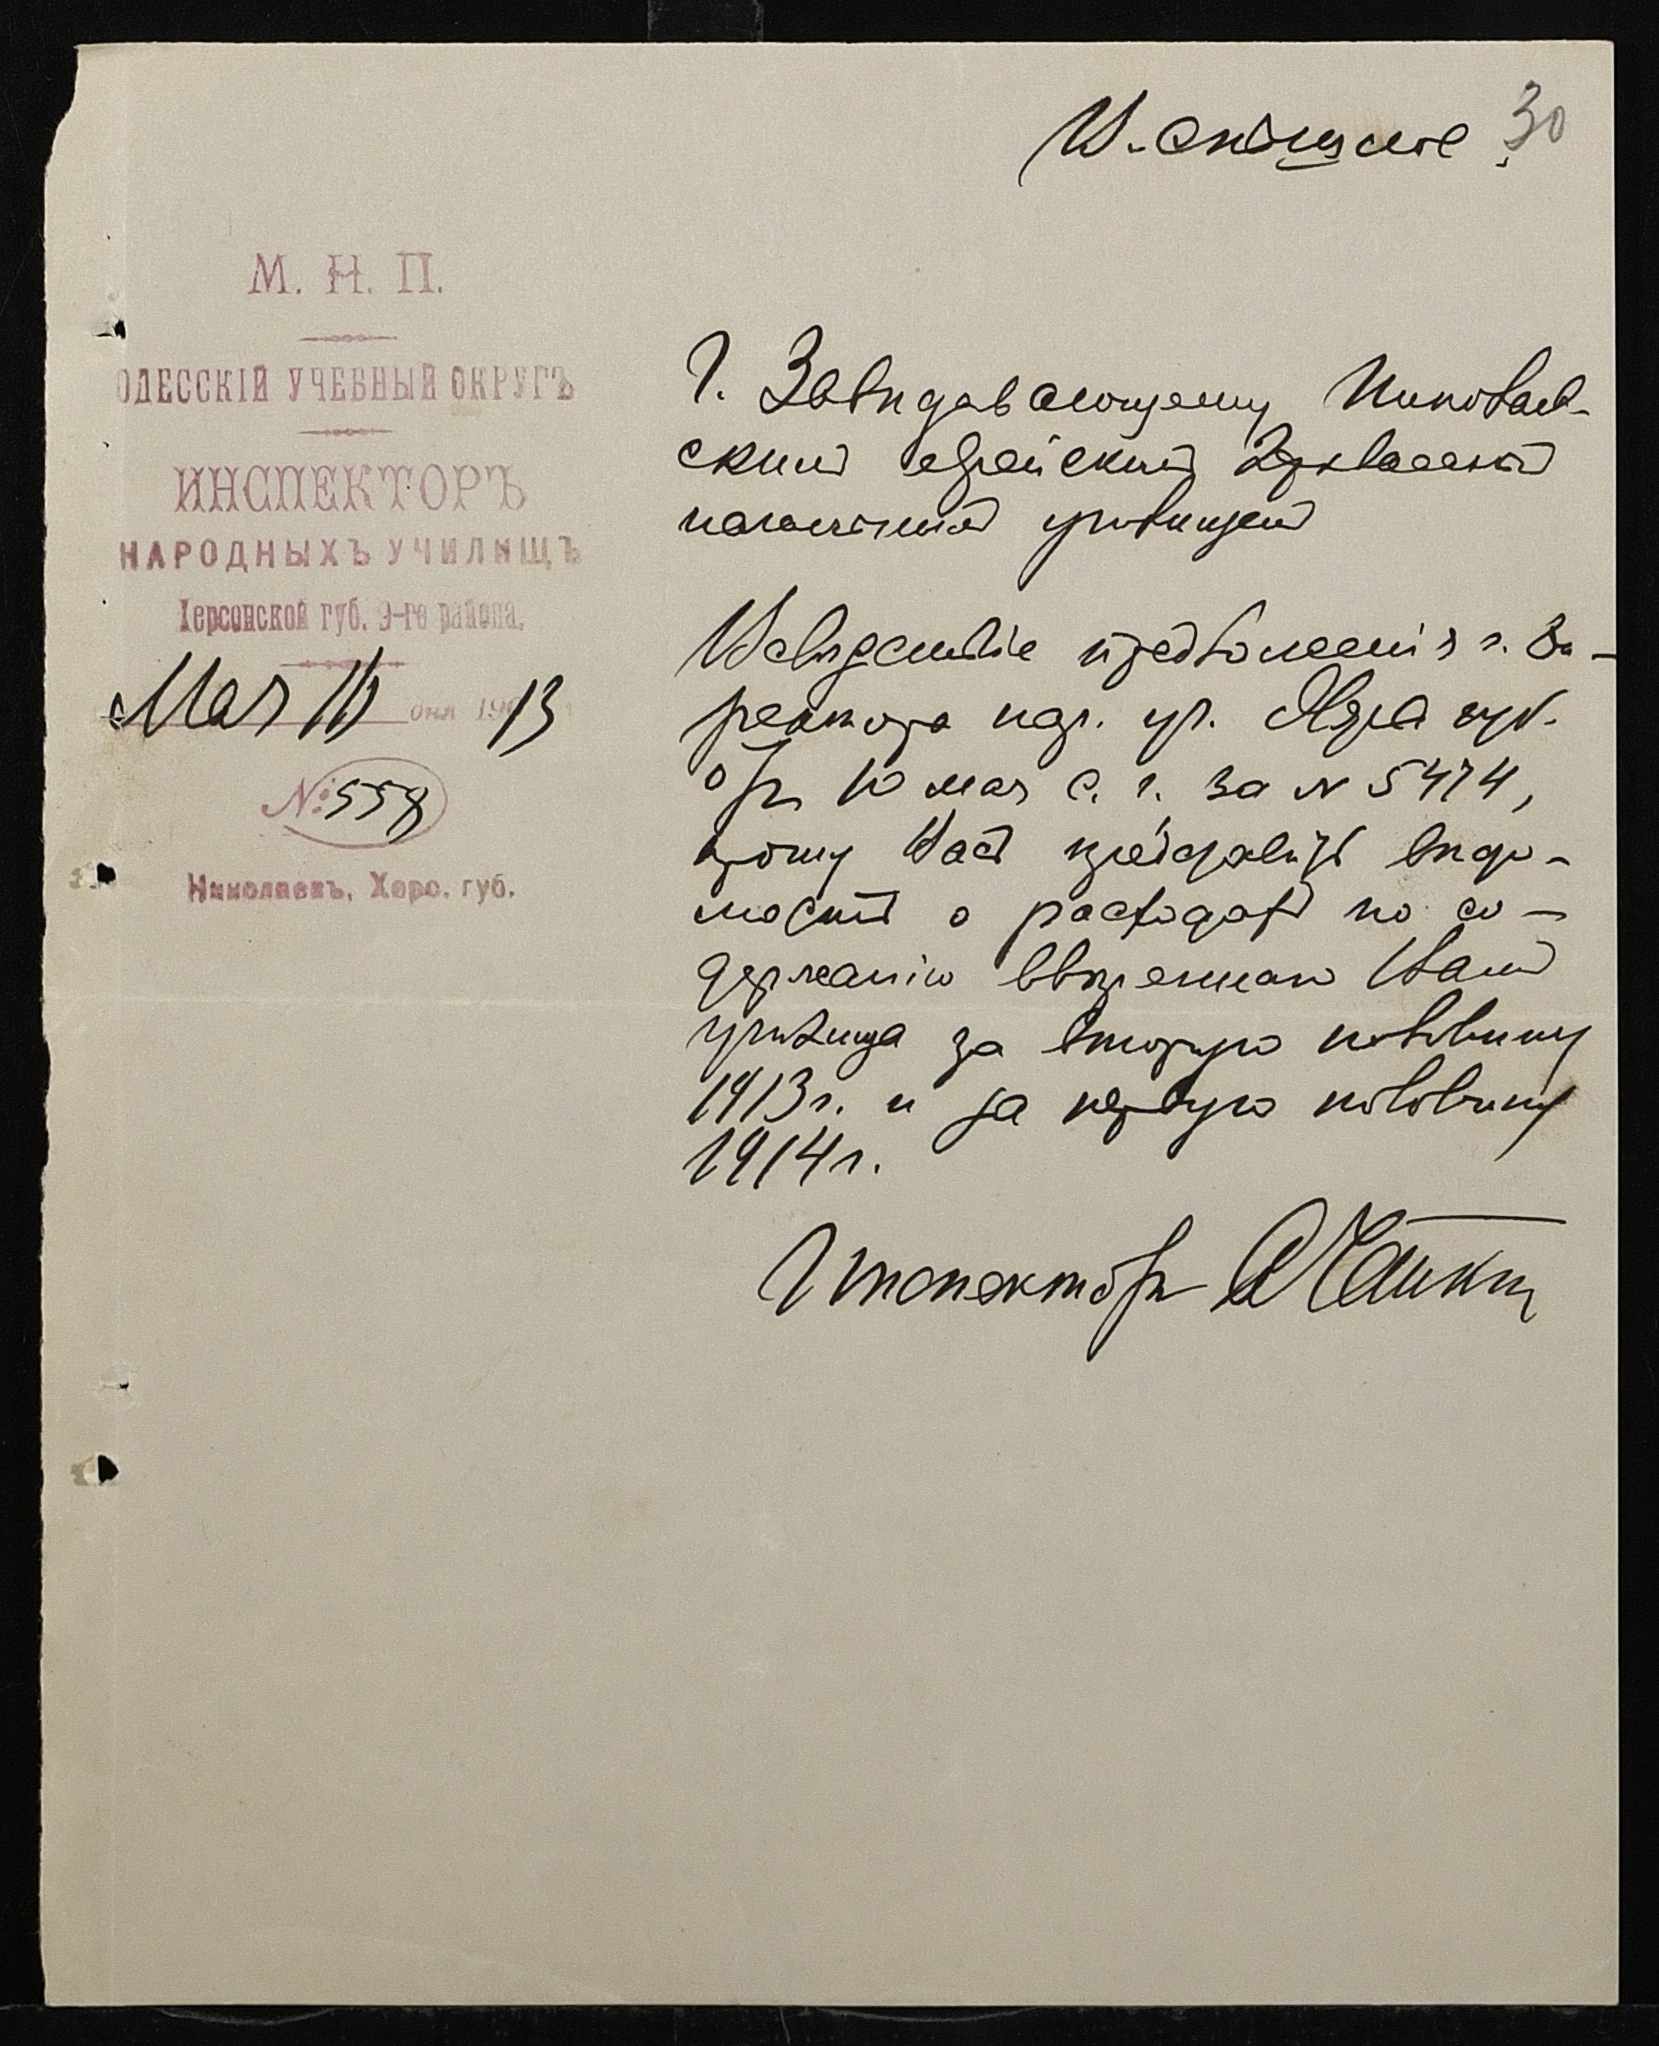 В. спѣшное.
30
М. Н. П.
ОДЕССКІЙ УЧЕБНЫЙ ОКРУГЪ
ИНСПЕКТОРЪ
НАРОДНЫХЪ УЧИЛИЩЪ
Херсонской губ. 9-го района.
Мая дня 1913
№ 558
Николаевъ, Херс. губ.
Г. Завѣдывающему Николаев-
скимъ еврейскимъ 2хкласснымъ
начальнымъ училищемъ
Вслѣдствіе предложенія г. Ди-
ректора нар. уч. Херс. губ.
отъ 10 мая с. г. за № 5474,
прошу Васъ представить вѣдо-
мость о расходахъ по со-
держанію ввѣреннаго Вамъ
училища за вторую половину
1913 г. и за первую половину
1914 г.
Инспекторъ